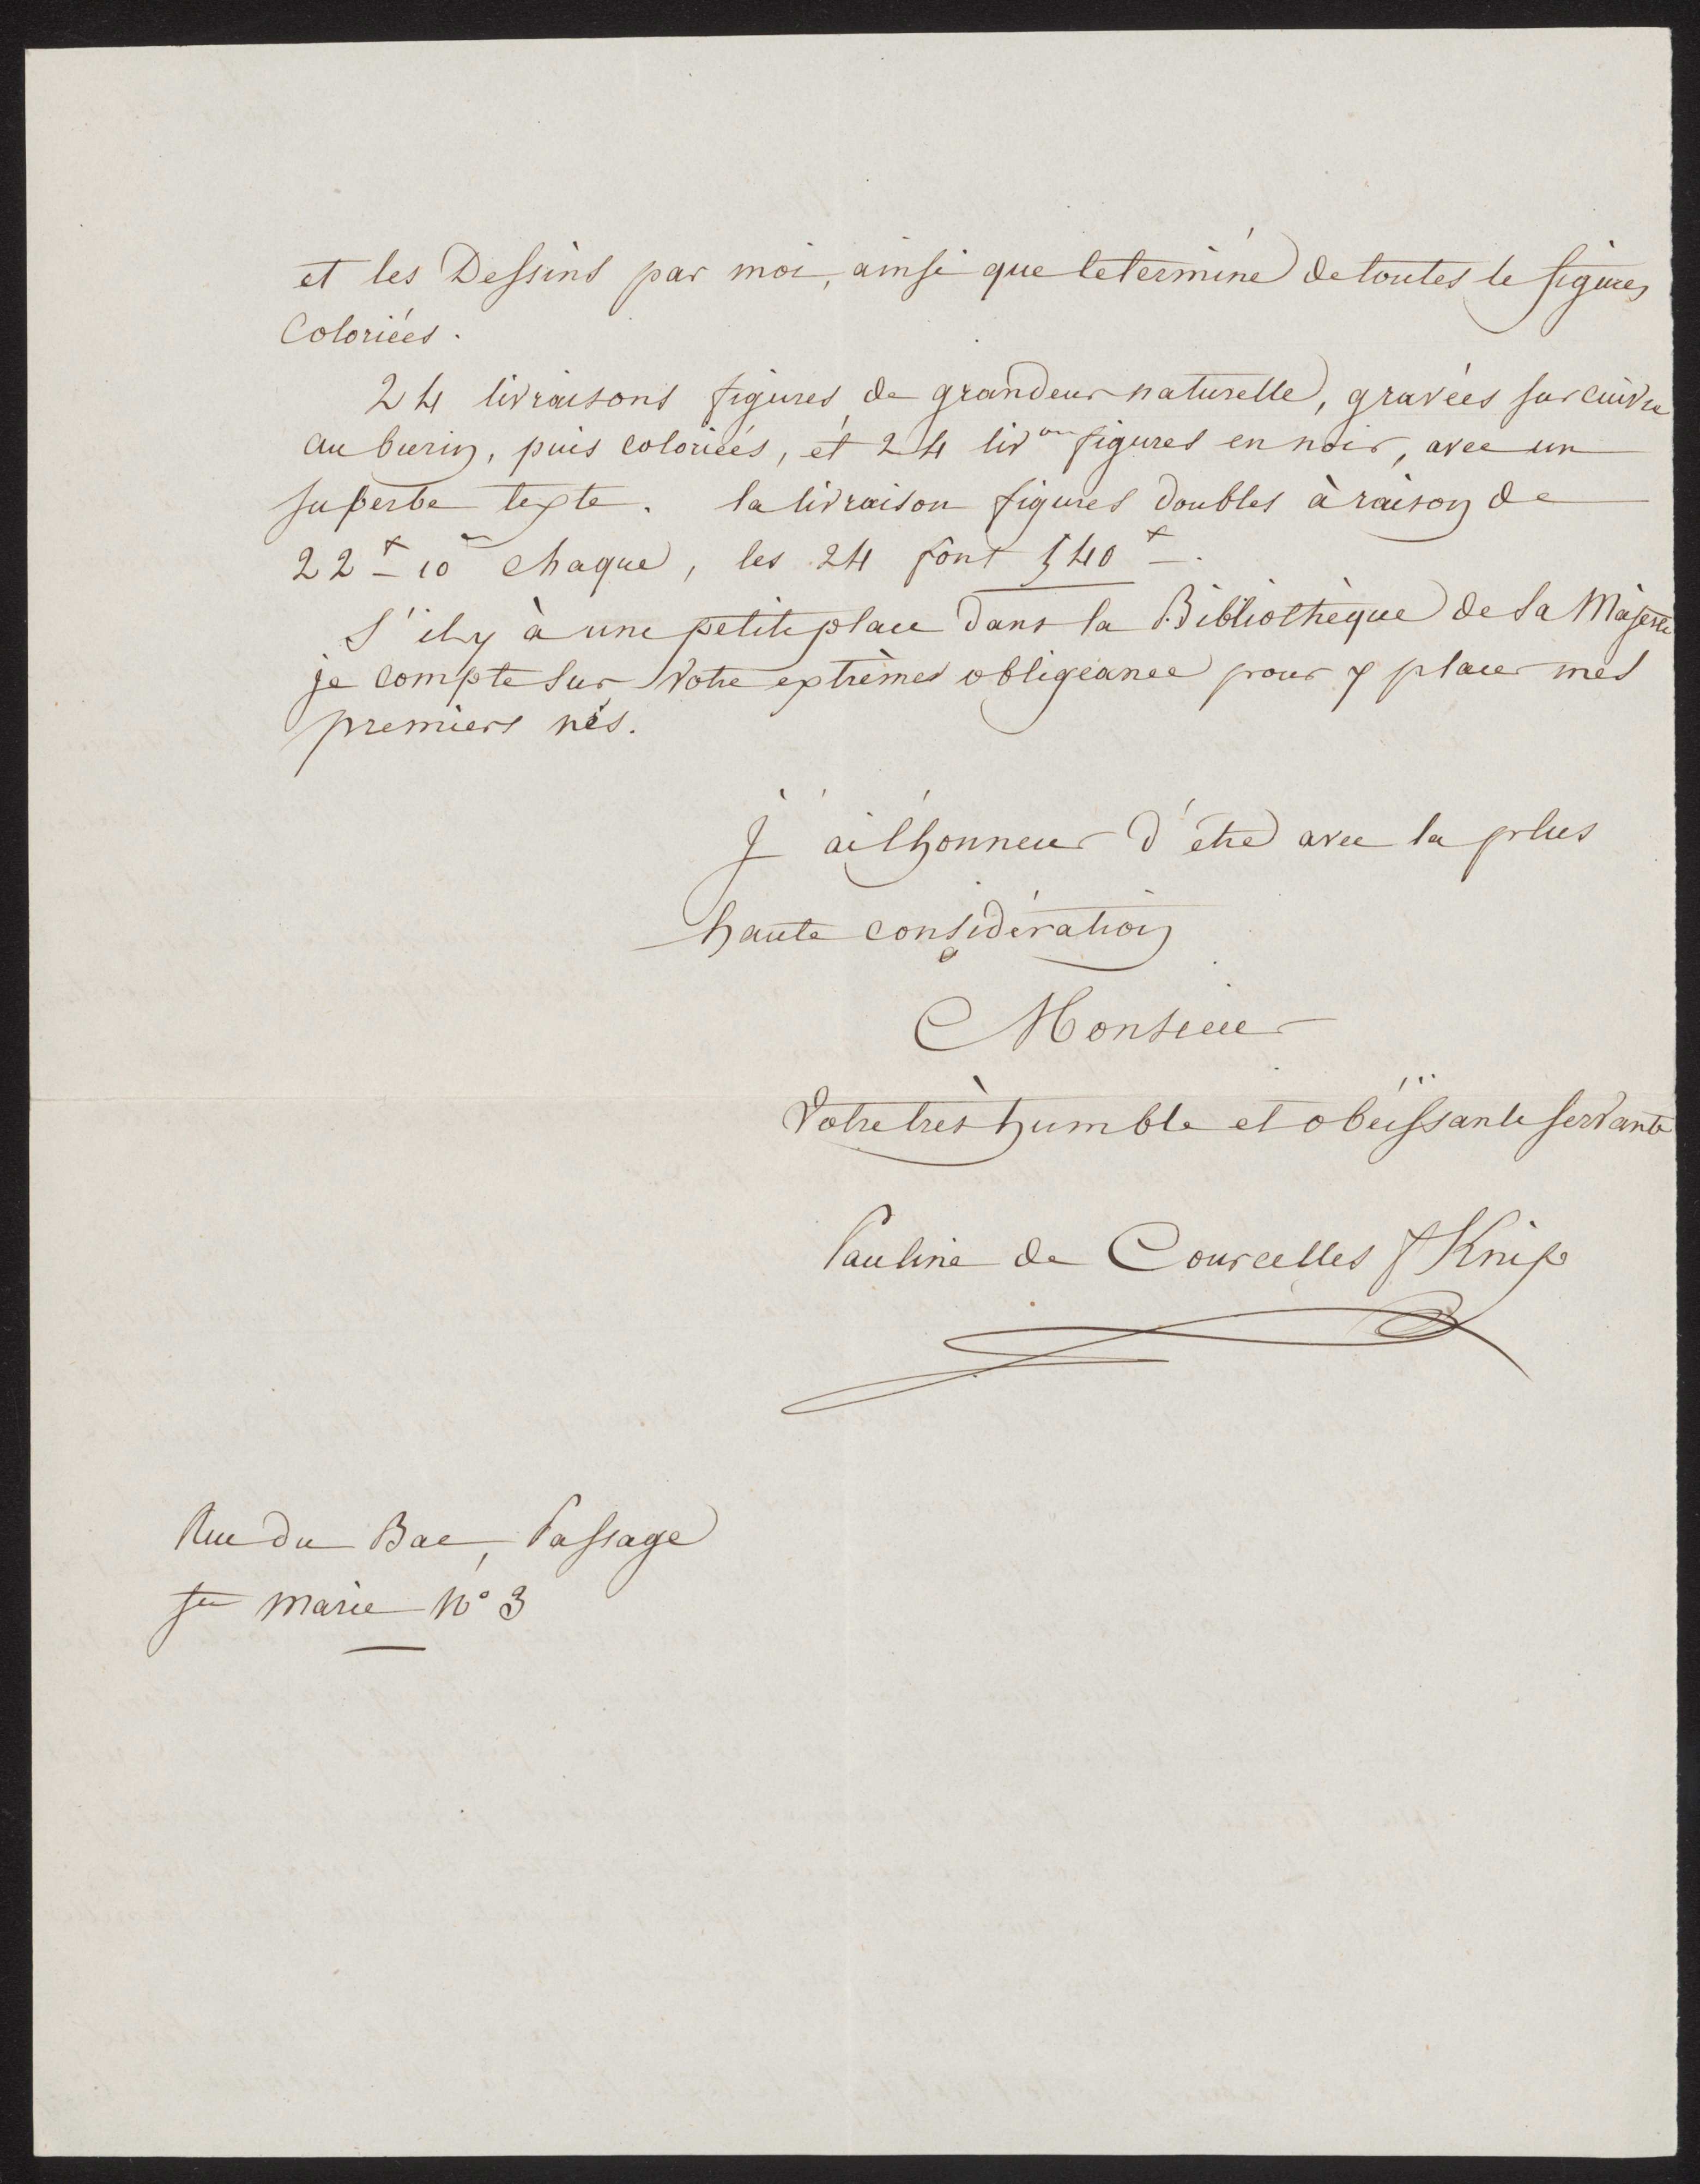 et les Dessins par moi, ainsi que le terminé de toutes le figures
Coloriées.
24 livraisons figures de grandeur naturelle, gravées sur cuivre
au burin, puis coloriées, et 24 liv.on figures en noir, avec un
superbe texte. la livraison figures doubles à raison de
22 - 10 chaque, les 24 font 540 -.
S'il y à une petite place dans la Bibliothèque de Sa Majesté
je compte sur votre extrème obligeance pour y placer mes
premiers nés.
J'ai l'honneur d'être avec la plus
haute considération
Monsieur
Votre très humble et obéïssante servante
Pauline de Courcelles Knip
Rue du Bac, Passage
Ste Marie No 3